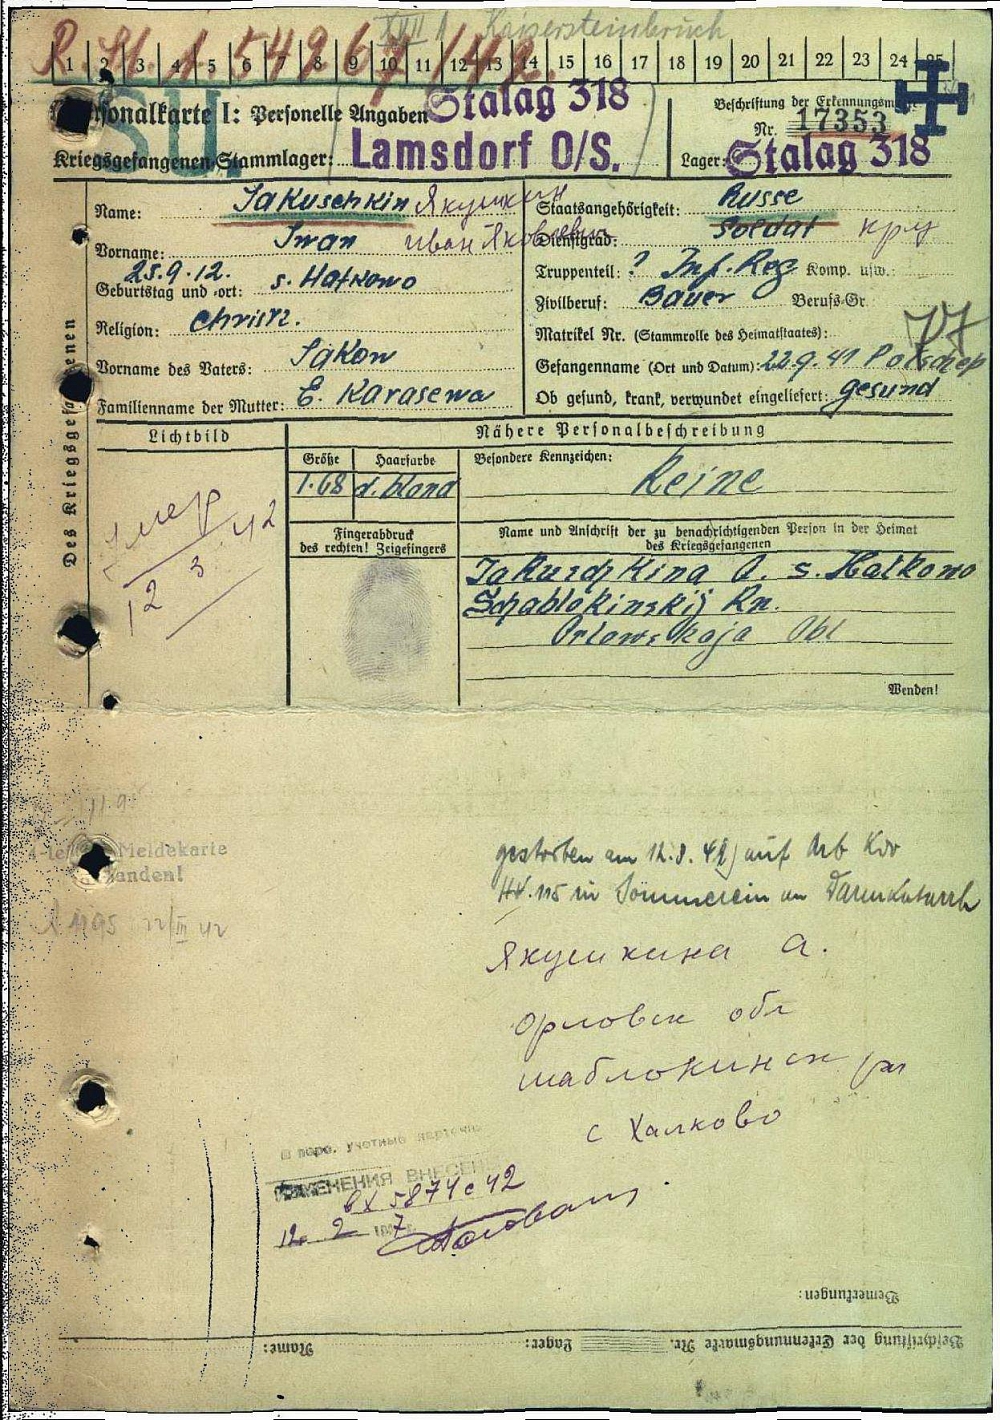 XVII A Kaisersteinbruch
1 2 3 4 5 6 7 8 9 10 11 12 13 14 15 16 17 18 19 20 21 22 23 24 25
SU
Personalkarte I: Personelle Angaben
Kriegsgefangenen-Stammlager:
Stalag 318
Lamsdorf O/S.
Beschriftung der Erkennungsmarke
Nr. 17353
Lager: Stalag 318
Des Kriegsgefangenen
Name: Jakuschkin Якушкин
Vorname: Iwan Иван Яковлевич
Geburtstag und -ort: 25.9.12. s. Halkowo
Religion: Christ.
Vorname des Vaters: Jakow
Familienname der Mutter: E. Karasewa
Staatsangehörigkeit: Russe
Dienstgrad: Soldat кр
Truppenteil: ? Inf. Reg Komp. usw.:
Zivilberuf: Bauer Berufs-Gr.
Matrikel Nr. (Stammrolle des Heimatstaates):
77
Gefangenname (Ort und Datum): 22.9.41 Potschep
Ob gesund, krank, verwundet eingeliefert: gesund
Lichtbild
Nähere Personalbeschreibung
Größe Haarfarbe Besondere Kennzeichen:
1.68 d. blond Keine
умер
12 3 42
Fingerabdruck
des rechten! Zeigefingers
Name und Anschrift der zu benachrichtigenden Person in der Heimat
des Kriegsgefangenen
Jakuschkina A. s. Halkowo
Schablokinskij Rn.
Orlowskaja Obl
Wenden!
Meldekarte
gestorben am 12.3.42 auf Arb Kdo
in Sommerein an Darmkatarrh
Якушкина А.
Орловск обл
Шаблокинск рн
с Халково
учетные карточки
ИЗМЕНЕНИЯ ВНЕСЕНЫ
вх 5874с 42
Bemerkungen:
Beschriftung der Erkennungsmarke Nr. Lager: Name: